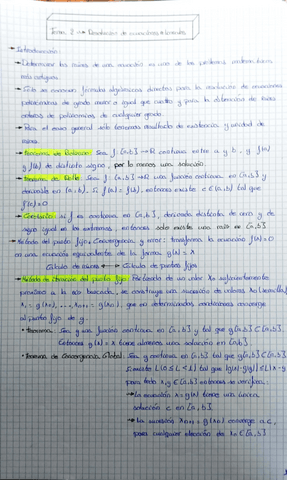 Tema 2 → Resolución de ecuaciones no lineales
→ Introducción:
→ Determinar las raíces de una ecuación es uno de los problemas matemáticos
más antiguos.
→ Sólo se conocen fórmulas algebraicas directas para la resolución de ecuaciones
polinómicas de grado menor o igual que cuatro y para la obtención de raíces
enteras de polinomios de cualquier grado.
→ Para el caso general solo tenemos resultados de existencia y unidad de
raíces.
→ Teorema de Bolzano: Sea f: [a,b] → R continua entre a y b, y f(a)
y f(b) de distinto signo, por lo menos una solución.
→ Teorema de Rolle: Sea f: [a,b] → R una función continua en [a,b] y
derivable en (a,b), si f(a) = f(b), entonces existe c ∈ (a,b) tal que
f'(c)=0
→ Corolario: si f es continua en [a,b], derivada distinta de cero y de
signo igual en los extremos, entonces solo existe una raíz en [a,b]
→ Método del punto fijo, Convergencia y error: transforma la ecuación f(x)=0
en una ecuación equivalente de la forma g(x) = x
Cálculo de raíces ↔ Cálculo de puntos fijos
→ Método de iteración del punto fijo: Partiendo de un valor x₀ suficientemente
próximo a la raíz buscada, se construye una sucesión de valores
x₁ = g(x₀), ..., xₙ₊₁ = g(xₙ), que en determinadas condiciones converge
al punto fijo de g.
• Teorema: Sea g una función continua en [a,b] y tal que g[a,b] ⊂ [a,b].
Entonces g(x) = x tiene al menos una solución en [a,b]
• Teorema de Convergencia Global: Sea g continua en [a,b] tal que g[a,b] ⊂ [a,b]
Si existe L (0 ≤ L < 1) tal que |g(x)-g(y)| ≤ L|x-y|
para todo x,y ∈ [a,b] entonces se verifica:
→ La ecuación x = g(x) tiene una única
solución c en [a,b].
→ La sucesión xₙ₊₁ = g(xₙ) converge a c,
para cualquier elección de x₀ ∈ [a,b]